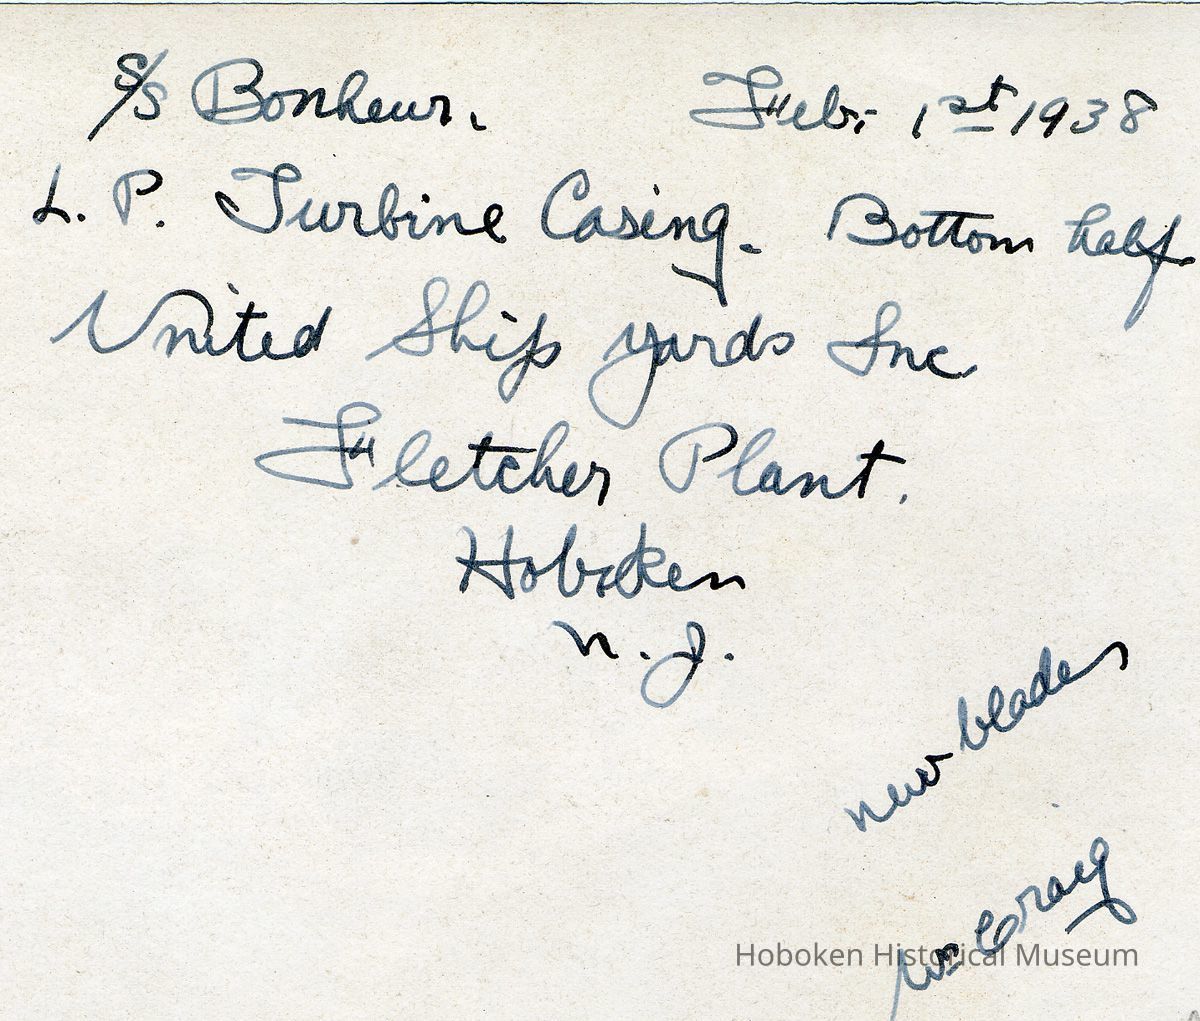 S/S Bonheur. Feb: 1st 1938
L. P. Turbine Casing. Bottom half
United Ship yards Inc
Fletcher Plant.
Hoboken
N. J.
new blades
Wm Craig
Hoboken Historical Museum